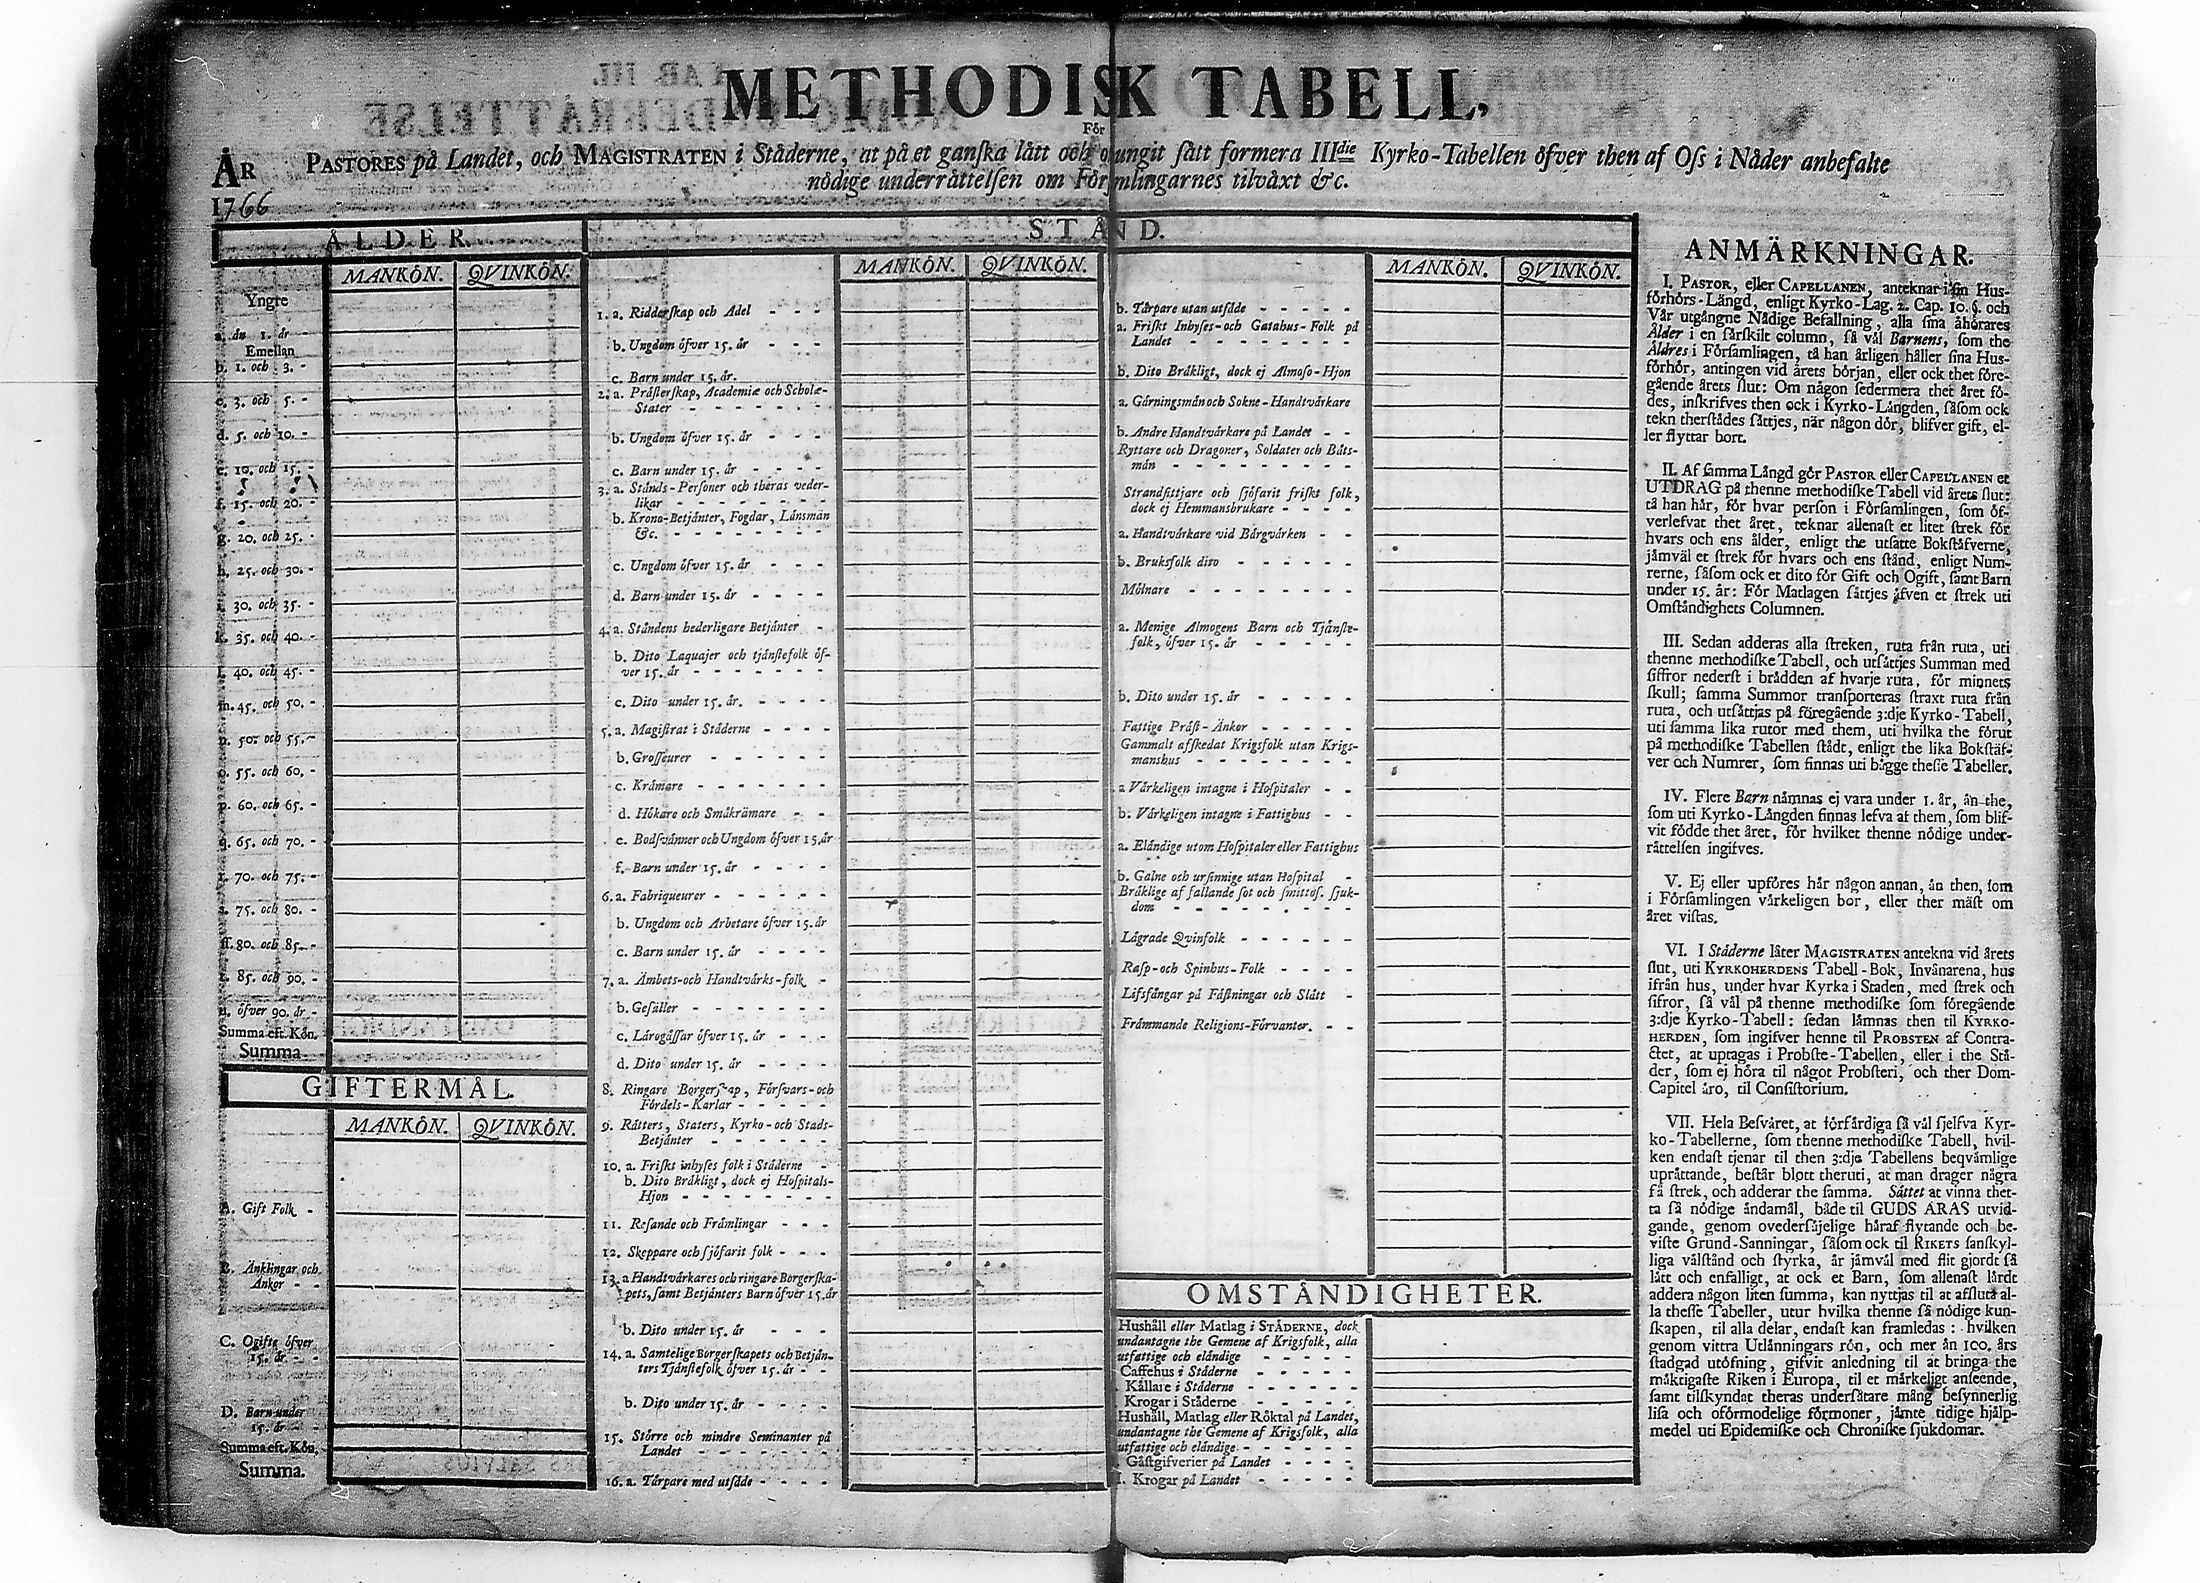 METHODISK TABELL,
För
PASTORES på Landet, och MAGISTRATEN i Ståderne, at på et ganſka lått och otungit ſått formera IIIdie Kyrko-Tabellen öfver then af Oſs i Nåder anbefalte
nödige underråttelſen om Förſamlingarnes tilvåxt &c.
ÅR
1766
ÅLDER.
MANKÖN. QVINKÖN.
Yngre
a. ån 1. år -
Emellan
b. 1. och 3. -
c. 3. och 5. -
d. 5. och 10. -
e. 10. och 15. -
f. 15. och 20. -
g. 20. och 25. -
h. 25. och 30. -
i. 30. och 35. -
k. 35. och 40. -
l. 40. och 45. -
m. 45. och 50. -
n. 50. och 55. -
o. 55. och 60. -
p. 60. och 65. -
q. 65. och 70. -
r. 70. och 75. -
s. 75. och 80. -
ſſ. 80. och 85. -
t. 85. och 90. -
u. öfver 90. år -
Summa eft. Kön.
Summa
GIFTERMÅL.
MANKÖN. QVINKÖN.
A. Gift Folk -
B. Änklingar och
Änkor - -
C. Ogifte öfver
15. år - -
D. Barn under
15. år - -
Summa eft. Kön,
Summa.
STÅND.
MANKÖN. QVINKÖN.
1. a. Ridderſkap och Adel - - -
b. Ungdom öfver 15. år - - -
c. Barn under 15. år.
2. a. Pråſterſkap, Academiæ och Scholæ-
Stater - - - - - -
b. Ungdom öfver 15. år - - -
c. Barn under 15. år - - - -
3. a. Stånds-Perſoner och theras veder-
likar - - - - - - -
b. Krono-Betjånter, Fogdar, Lånsmån
&c. - - - - - - -
c. Ungdom öfver 15. år - - - -
d. Barn under 15. år - - - -
4. a. Ståndens hederligare Betjånter -
b. Dito Laquajer och tjånſtefolk öf-
ver 15. år - - - - - -
c. Dito under 15. år. - - - -
5. a. Magiſtrat i Ståderne - - - -
b. Groſſeurer - - - - - -
c. Kråmare - - - - - - -
d. Hökare och Småkråmare - -
e. Bodſvånner och Ungdom öfver 15. år
f. Barn under 15. år - - - -
6. a. Fabriqueurer - - - - -
b. Ungdom och Arbetare öfver 15. år
c. Barn under 15. år - - - -
7. a. Åmbets-och Handtvårks-folk -
b. Geſåller - - - - - -
c. Lårogåſſar öfver 15. år - - -
d. Dito under 15. år - - - -
8. Ringare Borgerſkap, Förſvars-och
Fördels-Karlar - - - - -
9. Råtters, Staters, Kyrko-och Stads-
Betjånter - - - - - -
10. a. Friſkt inhyſes folk i Ståderne -
b. Dito Bråkligt, dock ej Hoſpitals-
Hjon - - - - - - -
11. Reſande och Fråmlingar - - -
12. Skeppare och ſjöfarit folk - - -
13. a Handtvårkares och ringare Borgerſka-
pets, ſamt Betjånters Barn öfver 15. år
b. Dito under 15. år - - -
14. a. Samtelige Borgerſkapets och Betjån-
ters Tjånſtefolk öfver 15. år - -
b. Dito under 15. år - - - -
15. Större och mindre Seminanter på
Landet - - - - - - -
16. a. Tårpare med utſåde - - - -
MANKÖN. QVINKÖN.
b. Tårpare utan utſåde - - - - -
a. Friſkt Inhyſes-och Gatahus-Folk på
Landet - - - - - - -
b. Dito Bråkligt, dock ej Almoſo-Hjon
a. Gårningsmån och Sokne-Handtvårkare
b. Andre Handtvårkare på Landet - -
Ryttare och Dragoner, Soldater och Båts-
mån - - - - - - - -
Strandſittjare och ſjöfarit friſkt folk,
dock ej Hemmansbrukare - - - -
a. Handtvårkare vid Bårgvårken - -
b. Bruksfolk dito - - - - -
Mölnare - - - - - - -
a. Menige Almogens Barn och Tjånſte-
folk, öfver 15. år - - - - -
b. Dito under 15. år - - - - -
Fattige Pråſt-Änkor - - - - -
Gammalt afſkedat Krigsfolk utan Krigs-
manshus - - - - - - -
a Vårkeligen intagne i Hoſpitaler - -
b. Vårkeligen intagne i Fattighus - -
a. Elåndige utom Hoſpitaler eller Fattighus
b. Galne och urſinnige utan Hoſpital -
Bråklige af fallande ſot och ſmittoſ. ſjuk-
dom - - - - - - - -
Lågrade Qvinfolk - - - - - -
Raſp-och Spinhus-Folk - - - -
Lifsfångar på Fåſtningar och Slått -
Fråmmande Religions-Förvanter. - -
OMSTÅNDIGHETER.
Hushåll eller Matlag i STÅDERNE, dock
undantagne the Gemene af Krigsfolk, alla
utfattige och elåndige - - - - -
Caffehus i Ståderne - - - - -
Kållare i Ståderne - - - - - -
Krogar i Ståderne - - - - -
Hushåll, Matlag eller Röktal på Landet,
undantagne the Gemene af Krigsfolk, alla
utfattige och elåndige - - - - - -
Gåſtgifverier på Landet - - - -
Krogar på Landet - - - - -
ANMÄRKNINGAR.
I. PASTOR, eller CAPELLANEN, anteknar i ſin Hus-
förhörs-Långd, enligt Kyrko-Lag. 2. Cap. 10. §. och
Vår utgångne Nådige Befallning, alla ſina åhörares
Ålder i en ſårſkilt column, ſå vål Barnens, ſom the
Åldres i Förſamlingen, tå han årligen håller ſina Hus-
förhör, antingen vid årets början, eller ock thet före-
gående årets ſlut: Om någon ſedermera thet året fö-
des, inſkrifves then ock i Kyrko-Långden, ſåſom ock
tekn therſtådes ſåttjes, når någon dör, blifver gift, el-
ler flyttar bort.
II. Af ſamma Långd gör PASTOR eller CAPELLANEN et
UTDRAG på thenne methodiſke Tabell vid årets ſlut:
tå han hår, för hvar perſon i Förſamlingen, ſom öf-
verlefvat thet året, teknar allenaſt et litet ſtrek för
hvars och ens ålder, enligt the utſatte Bokſtåfverne,
jåmvål et ſtrek för hvars och ens ſtånd, enligt Num-
rerne, ſåſom ock et dito för Gift och Ogift, ſamt Barn
under 15. år: För Matlagen ſåttjes åfven et ſtrek uti
Omſtåndighets Columnen.
III. Sedan adderas alla ſtreken, ruta från ruta, uti
thenne methodiſke Tabell, och utſåttjes Summan med
ſiffror nederſt i brådden af hvarje ruta, för minnets
ſkull; ſamma Summor transporteras ſtraxt ruta från
ruta, och utſåttjas på föregående 3:dje Kyrko-Tabell,
uti ſamma lika rutor med them, uti hvilka the förut
på methodiſke Tabellen ſtådt, enligt the lika Bokſtåf-
ver och Numrer, ſom finnas uti bågge theſſe Tabeller.
IV. Flere Barn nåmnas ej vara under 1. år, ån the,
ſom uti Kyrko-Långden finnas lefva af them, ſom blif-
vit födde thet året, för hvilket thenne nödige under-
råttelſen ingifves.
V. Ej eller upföres hår någon annan, ån then, ſom
i Förſamlingen vårkeligen bor, eller ther måſt om
året viſtas.
VI. I Ståderne låter MAGISTRATEN antekna vid årets
ſlut, uti KYRKOHERDENS Tabell-Bok, Invånarena, hus
ifrån hus, under hvar Kyrka i Staden, med ſtrek och
ſifror, ſå vål på thenne methodiſke ſom föregående
3:dje Kyrko-Tabell: ſedan låmnas then til KYRKO-
HERDEN, ſom ingifver henne til PROBSTEN af Contra-
ctet, at uptagas i Probſte-Tabellen, eller i the Stå-
der, ſom ej höra til något Probſteri, och ther Dom-
Capitel åro, til Conſiſtorium.
VII. Hela Beſvåret, at förfårdiga ſå vål ſjelfva Kyr-
ko-Tabellerne, ſom thenne methodiſke Tabell, hvil-
ken endaſt tjenar til then 3:dje Tabellens beqvåmlige
upråttande, beſtår blott theruti, at man drager några
få ſtrek, och adderar the ſamma. Såttet at vinna thet-
ta ſå nödige åndamål, både til GUDS ÅRAS utvid-
gande, genom ovederſåjelige håraf flytande och be-
viſte Grund-Sanningar, ſåſom ock til RIKETS ſanſkyl-
liga vålſtånd och ſtyrka, år jåmvål med flit gjordt ſå
lått och enfalligt, at ock et Barn, ſom allenaſt lårdt
addera någon liten ſumma, kan nyttjas til at afſluta al-
la theſſe Tabeller, utur hvilka thenne ſå nödige kun-
ſkapen, til alla delar, endaſt kan framledas: hvilken
genom vittra Utlånningars rön, och mer ån 100. års
ſtadgad utöfning, gifvit anledning til at bringa the
måktigaſte Riken i Europa, til et mårkeligt anſeende,
ſamt tilſkyndat theras underſåtare mång beſynnerlig
liſa och oförmodelige förmoner, jåmte tidige hjålp-
medel uti Epidemiſke och Chroniſke ſjukdomar.